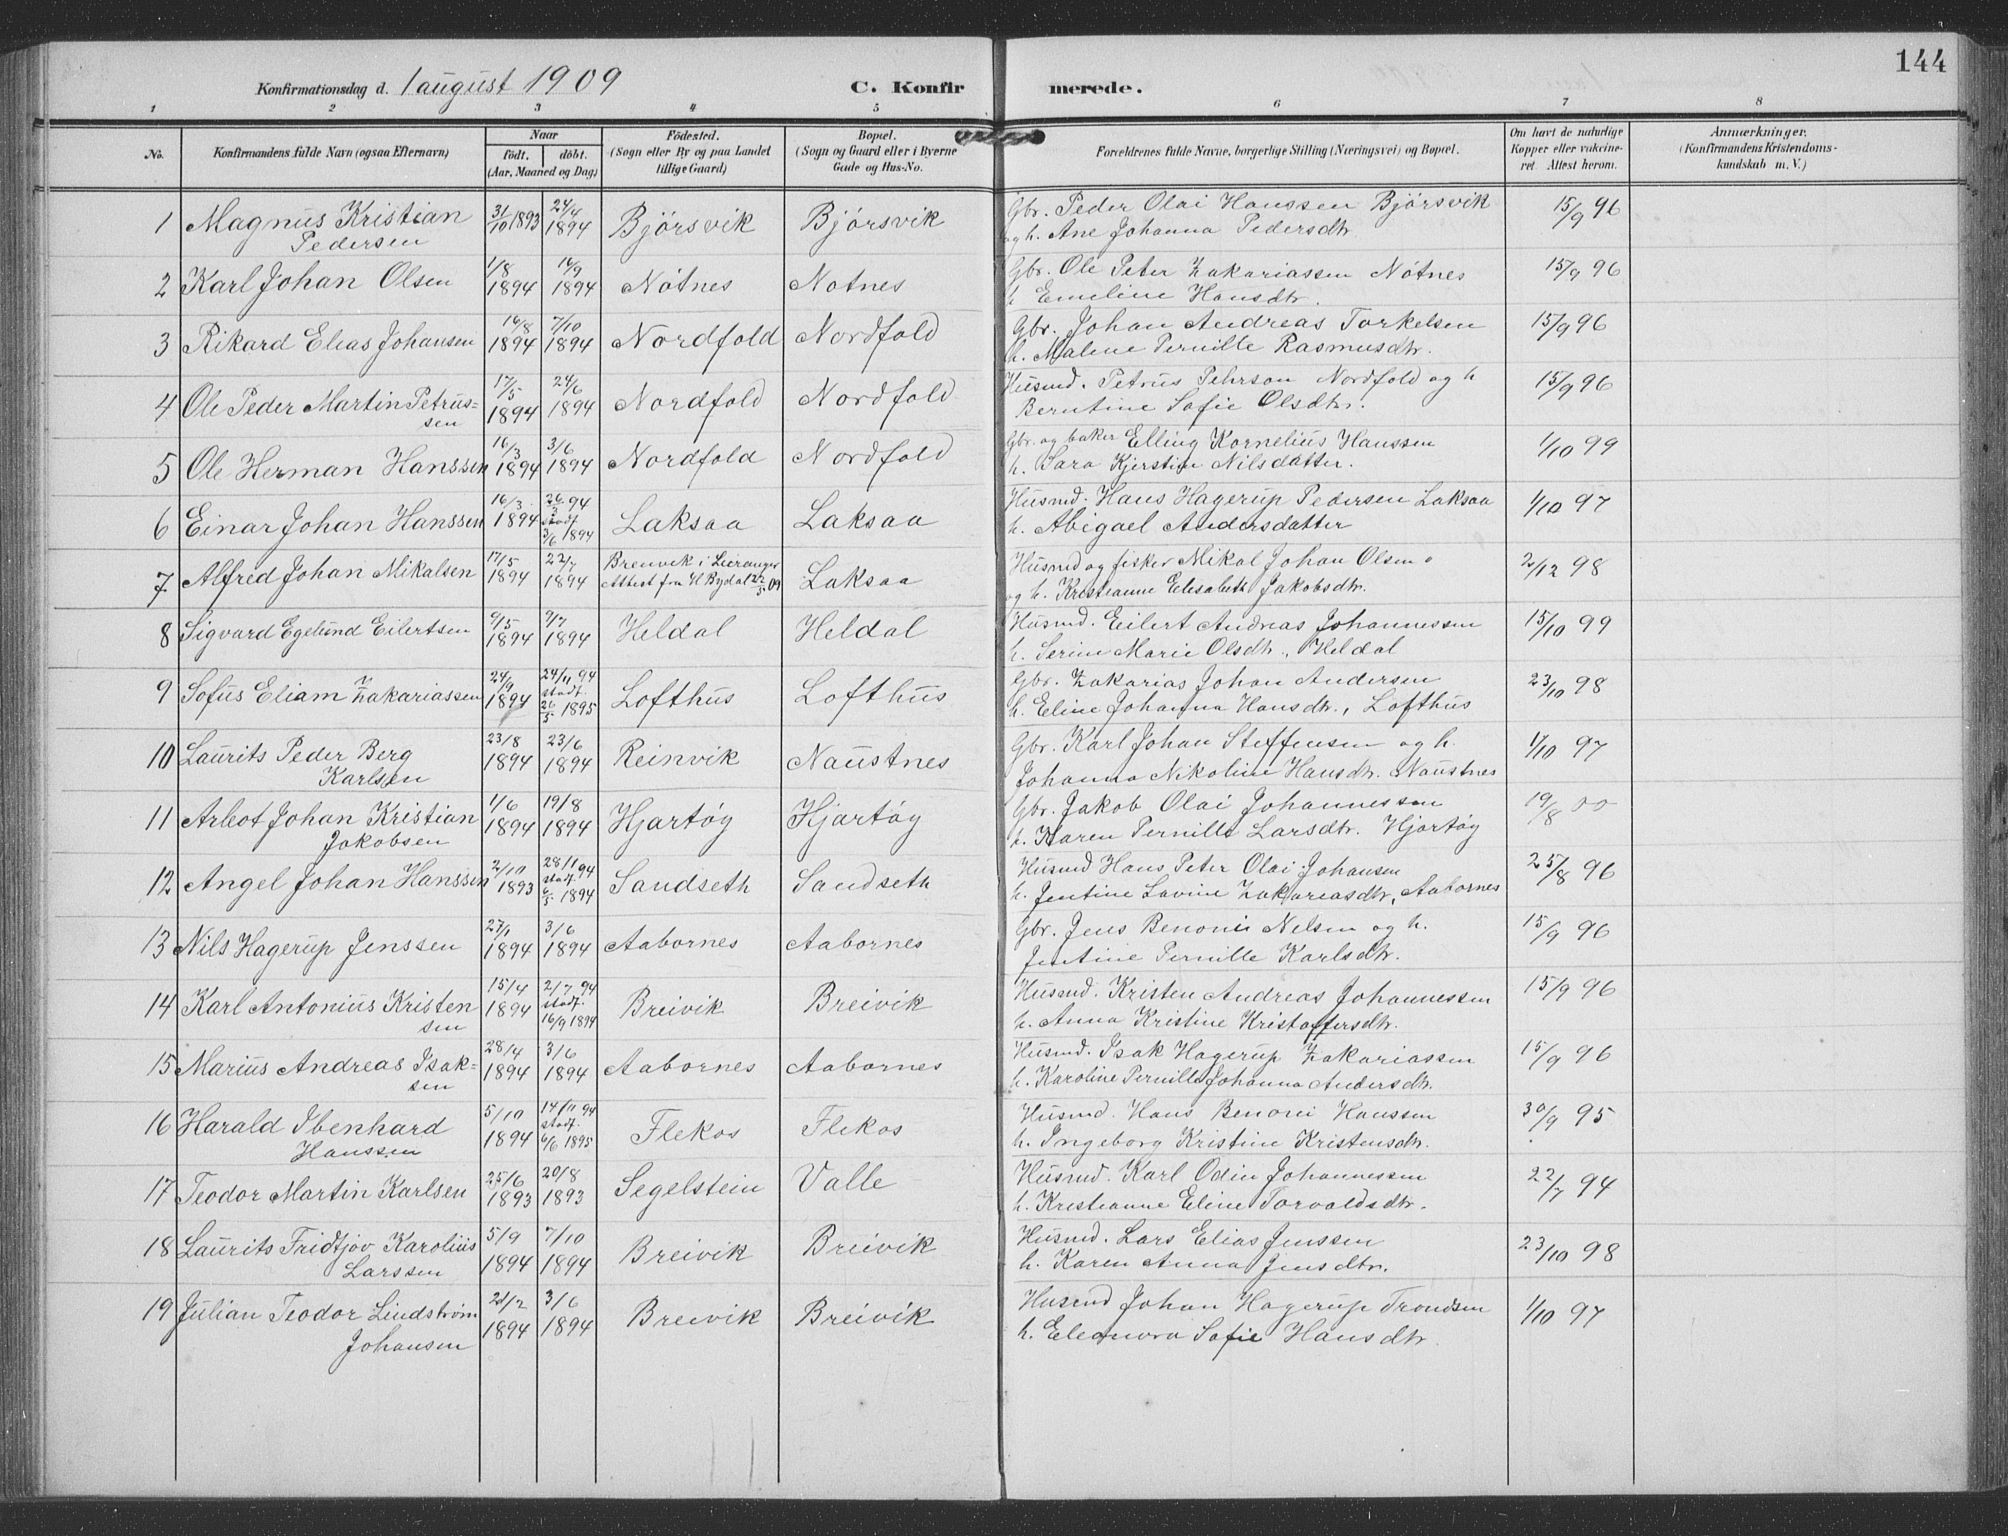 144
Konfirmationsdag d. 1 august 1909 C. Konfirmerede.
1 2 3 4 5 6 7 8
No. Konfirmandens fulde Navn (ogsaa Efternavn) Naar födt. döbt. (Aar, Maaned og Dag) Födested. (Sogn eller By og paa Landet tillige Gaard) Bopæl. (Sogn og Gaard eller i Byerne Gade og Hus-No. Forældrenes fulde Navne, borgerlige Stilling (Næringsvei) og Bopæl. Om havt de naturlige Kopper eller vakcineret. Attest herom. Anmærkninger. (Konfirmandens Kristendomskundskab m. V.)
1 Magnus Kristian Pedersen 31/10 1893 24/4 1894 Bjørsvik Bjørsvik Gbr. Peder Olai Hanssen Bjørsvik 15/9 96
og h. Ane Johanna Pedersdtr
2 Karl Johan Olsen 1/8 1894 16/9 1894 Nøtnes Nøtnes Gbr. Ole Peter Zakariassen Nøtnes 15/9 96
h Emeline Hansdtr.
3 Rikard Elias Johansen 16/8 1894 7/10 1894 Nordfold Nordfold Gbr. Johan Andreas Torkelsen 15/9 96
h. Malene Pernille Rasmusdtr.
4 Ole Peder Martin Petrussen 17/5 1894 24/6 1894 Nordfold Nordfold Husmd. Petrus Pehrson Nordfold og h 15/9 96
Berntine Sofie Olsdtr.
5 Ole Herman Hanssen 16/3 1894 3/6 1894 Nordfold Nordfold Gbr. og baker Elling Kornelius Hanssen 1/10 99
h. Sara Kjerstin Nilsdatter.
6 Einar Johan Hanssen 16/3 1894 26/3 94 stadf. 3/6 1894 Laksaa Laksaa Husmd. Hans Hagerup Pedersen Laksaa 1/10 97
h. Abigael Andersdatter
7 Alfred Johan Mikalsen 17/5 1894 22/7 1894 Brenvik i Leiranger Attest fra H Bydal 22/5 09 Laksaa Husmd og fisker Mikal Johan Olsen 2/12 98
og h. Kristianne Elisabeth Jakobsdtr.
8 Sigvard Egelund Eilertsen 6/5 1894 9/7 1894 Heldal Heldal Husmd. Eilert Andreas Johannessen 15/10 99
h. Serine Marie Olsdtr., Heldal
9 Sofus Eliam Zakariassen 24/9 1894 24/11 94 stadf. 26/5 1895 Lofthus Lofthus Gbr. Zakarias Johan Andersen 23/10 98
h. Eline Johanna Hansdtr., Lofthus
10 Laurits Peder Berg Karlsen 23/8 1894 23/6 1894 Reinvik Naustnes Gbr. Karl Johan Steffensen og h. 1/10 97
Johanna Nikoline Hansdtr. Naustnes
11 Arleot Johan Kristian Jakobsen 1/6 1894 19/8 1894 Hjartøy Hjartøy Gbr. Jakob Olai Johannessen 19/8 00
h. Karen Pernille Larsdtr. Hjartøy
12 Angel Johan Hanssen 2/10 1893 28/11 94 stadf. 6/5 1894 Sandseth Sandseth Husmd Hans Peter Olai Johansen 25/8 96
h. Jentine Lavine Zakariasdtr, Aabornes
13 Nils Hagerup Jenssen 27/1 1894 3/6 1894 Aabornes Aabornes Gbr. Jens Benoni Nelsen og h. 15/9 96
Jentine Pernille Karlsdtr.
14 Karl Antonius Kristensen 15/4 1894 2/7 94 stadf. 16/9 1894 Breivik Breivik Husmd. Kristen Andreas Johannessen 15/9 96
h. Anna Kristine Kristoffersdtr.
15 Marius Andreas Isaksen 28/4 1894 3/6 1894 Aabornes Aabornes Husmd. Isak Hagerup Zakariassen 15/9 96
h. Karoline Pernille Johanna Andersdtr.
16 Harald Ibenhard Hanssen 5/10 1894 14/11 94 stadf. 6/6 1895 Flekos Flekos Husmd. Hans Benoni Hanssen 30/9 95
h. Ingeborg Kristine Kristensdtr.
17 Teodor Martin Karlsen 25/6 1893 20/8 1893 Segelstein Valle Husmd. Karl Odin Johannessen 22/7 94
h. Kristianne Eline Torvaldsdtr.
18 Laurits Fridtjov Karolius Larssen 5/9 1894 7/10 1894 Breivik Breivik Husmd. Lars Elias Jenssen 23/10 98
h. Karen Anna Jensdtr.
19 Julian Teodor Lindstrøm Johansen 21/2 1894 3/6 1894 Breivik Breivik Husmd Johan Hagerup Trondsen 1/10 97
h. Eleonora Sofie Hansdtr.